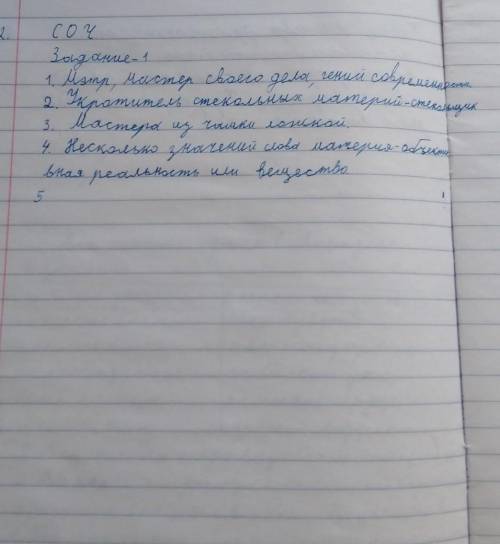 2. СОЧ
Задание-1
1. Мэтр, мастер своего дела, гений современности
2. Укротитель стекольных материй-стекольщик
3. Мастера из чашки ложкой.
4. Несколько значений слова материя-объекти
вная реальность или вещество
5